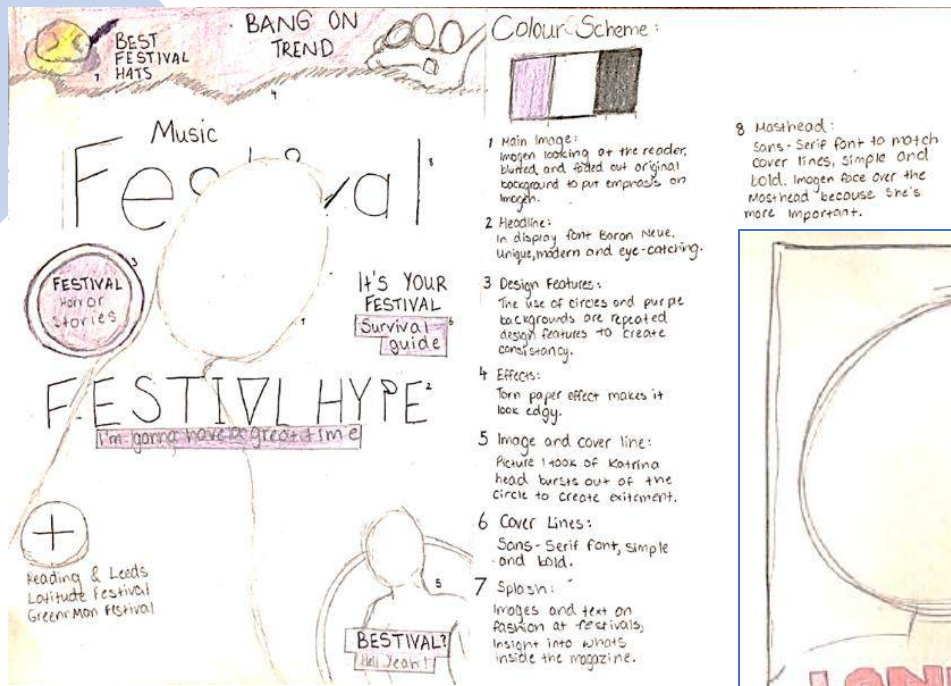 BEST
FESTIVAL
HATS
7
BANG ON
TREND
4
Music
Festival
8
3
FESTIVAL
Horror
Stories
IT'S YOUR
FESTIVAL
Survival
guide
6
1
FESTIVL HYPE
2
I'm gonna have a great time
+
Reading & Leeds
Latitude Festival
Greenman Festival
5
BESTIVAL?
Hell Yeah!
Colour Scheme:
1 Main Image:
Imogen looking at the reader,
blurred and faded out original
background to put emphasis on
Imogen.
2 Headline:
In display font Baron Neue.
Unique, modern and eye-catching.
3 Design Features:
The use of circles and purple
backgrounds are repeated
design features to create
consistancy.
4 Effects:
Torn paper effect makes it
look edgy.
5 Image and cover line:
Picture I took of Katrina
head bursts out of the
circle to create exitement.
6 Cover Lines:
Sans-Serif font, simple
and bold.
7 Splash:
Images and text on
fashion at festivals,
Insight into whats
inside the magazine.
8 Masthead:
Sans-Serif font to match
cover lines, simple and
bold. Imogen face over the
Masthead because she's
more important.